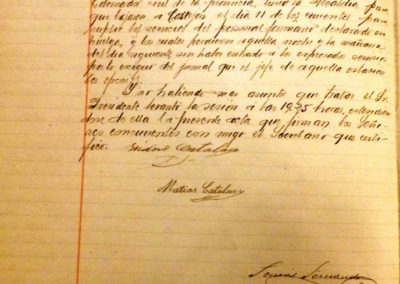 Gobernador civil de la provincia, como la Alcaldia, pa-
que bajasen a Castejon el dia 11 de los corrientes para
suplir los servicios del personal ferroviario declarado en
huelga, y los cuales pararon aquella noche o la mañana
del dia siguiente sin haber entrado al expresado servicio
por la orden del jornal que el jefe de aquella estacion
les
Y no habiendo mas asuntos que tratar el Sr.
Presidente levantó la sesión a las 19,35 horas, extendien-
dose de ella la presente acta que firman los Seño-
res concurrentes con migo el Secretario que certi-
fico.
Catalan
Matias Catalan
Tomas Hernandez